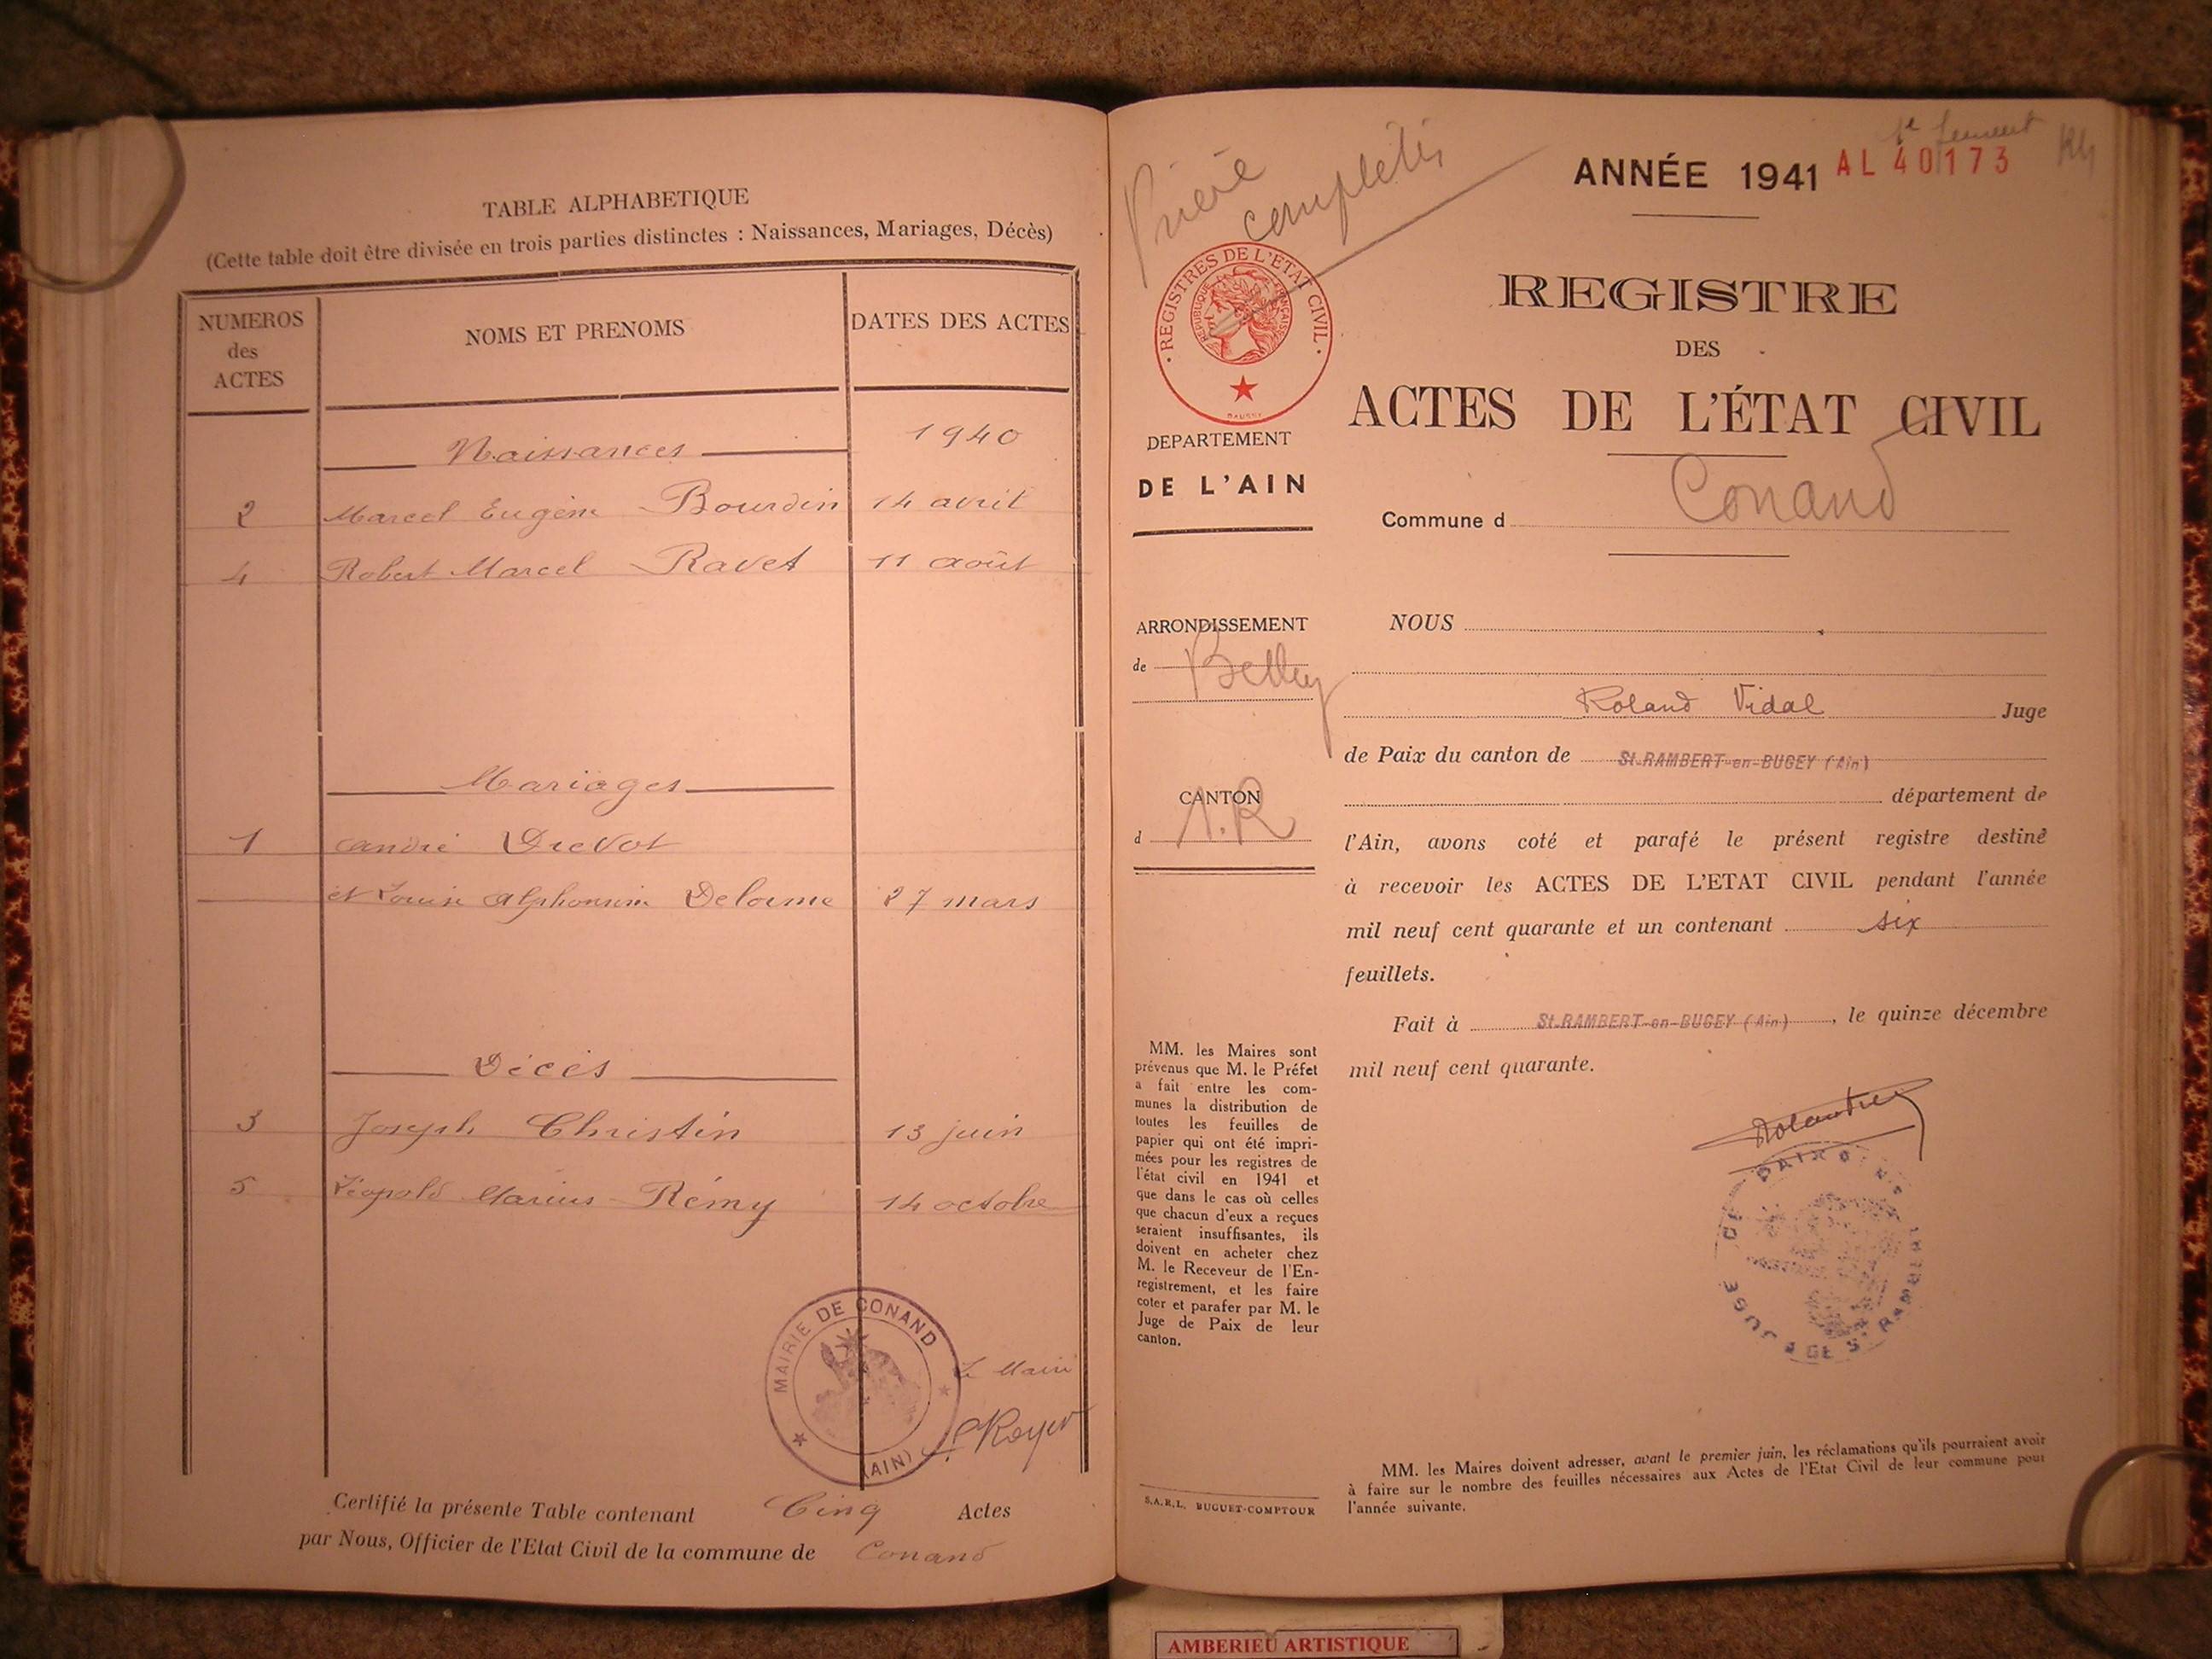 TABLE ALPHABETIQUE
(Cette table doit être divisée en trois parties distinctes : Naissances, Mariages, Décès)
NUMEROS
des
ACTES
NOMS ET PRENOMS
DATES DES ACTES
Naissances 1940
2 Marcel Eugène Bourdin 14 avril
4 Robert Marcel Ravet 11 août
Mariages
1 André Drevot
et Louise Alphonsine Delorme 27 mars
Décès
3 Joseph Christin 13 juin
5 Léopold Marius Rémy 14 octobre
MAIRIE DE CONAND
(AIN)
Le Maire
Royer
Certifié la présente Table contenant Cinq Actes
par Nous, Officier de l'Etat Civil de la commune de Conand
complétés
ANNÉE 1941 AL 40173
REGISTRES DE L'ETAT CIVIL
REPUBLIQUE FRANÇAISE
REGISTRE
DES
ACTES DE L'ÉTAT CIVIL
DEPARTEMENT
DE L'AIN
Commune d Conand
ARRONDISSEMENT
de Belley
CANTON
d
NOUS
Roland Vidal Juge
de Paix du canton de St-RAMBERT-en-BUGEY (Ain)
département de
l'Ain, avons coté et parafé le présent registre destiné
à recevoir les ACTES DE L'ETAT CIVIL pendant l'année
mil neuf cent quarante et un contenant six
feuillets.
Fait à St-RAMBERT-en-BUGEY (Ain), le quinze décembre
mil neuf cent quarante.
MM. les Maires sont
prévenus que M. le Préfet
a fait entre les com-
munes la distribution de
toutes les feuilles de
papier qui ont été impri-
mées pour les registres de
l'état civil en 1941 et
que dans le cas où celles
que chacun d'eux a reçues
seraient insuffisantes, ils
doivent en acheter chez
M. le Receveur de l'En-
registrement, et les faire
coter et parafer par M. le
Juge de Paix de leur
canton.
S.A.R.L. BUGUET-COMPTOUR
MM. les Maires doivent adresser, avant le premier juin, les réclamations qu'ils pourraient avoir
à faire sur le nombre des feuilles nécessaires aux Actes de l'Etat Civil de leur commune pour
l'année suivante.
AMBERIEU ARTISTIQUE